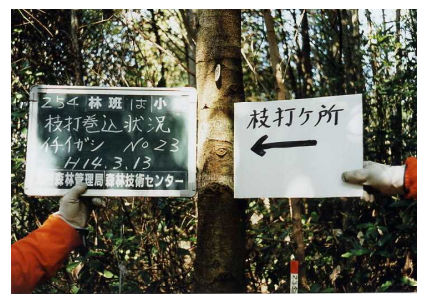 254 林班は小
枝打巻込状況
イチイガシ No 23
H14.3.13
森林管理局森林技術センター
枝打ケ所
←